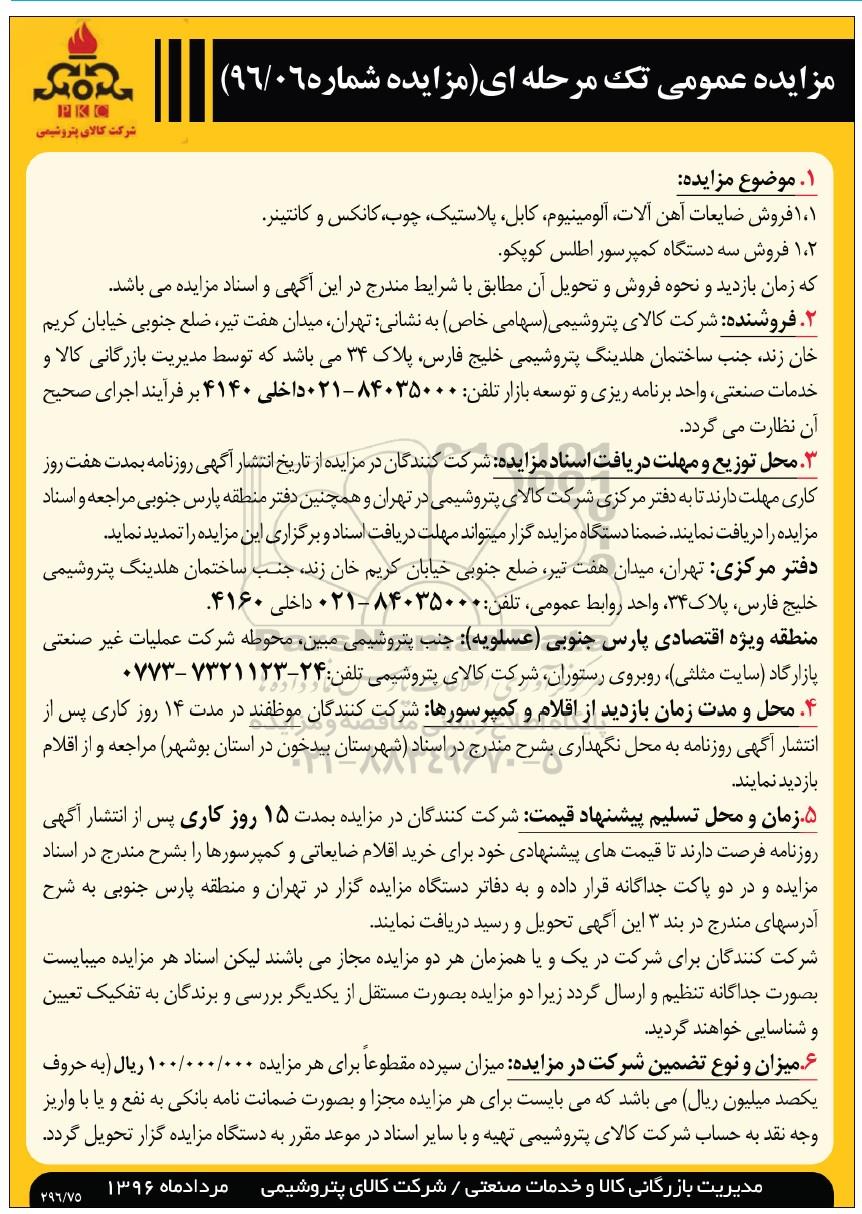 مزایده عمومی تک مرحله ای(مزایده شماره ۹۶/۰۶)
PKC
شرکت کالای پتروشیمی
۱. موضوع مزایده:
۱،۱فروش ضایعات آهن آلات، آلومینیوم، کابل، پلاستیک، چوب،کانکس و کانتینر.
۱،۲ فروش سه دستگاه کمپرسور اطلس کوپکو.
که زمان بازدید و نحوه فروش و تحویل آن مطابق با شرایط مندرج در این آگهی و اسناد مزایده می باشد.
۲. فروشنده: شرکت کالای پتروشیمی(سهامی خاص) به نشانی: تهران، میدان هفت تیر، ضلع جنوبی خیابان کریم
خان زند، جنب ساختمان هلدینگ پتروشیمی خلیج فارس، پلاک ۳۴ می باشد که توسط مدیریت بازرگانی کالا و
خدمات صنعتی، واحد برنامه ریزی و توسعه بازار تلفن: ۸۴۰۳۵۰۰۰-۰۲۱داخلی ۴۱۴۰ بر فرآیند اجرای صحیح
آن نظارت می گردد.
۳. محل توزیع و مهلت دریافت اسناد مزایده: شرکت کنندگان در مزایده از تاریخ انتشار آگهی روزنامه بمدت هفت روز
کاری مهلت دارند تا به دفتر مرکزی شرکت کالای پتروشیمی در تهران و همچنین دفتر منطقه پارس جنوبی مراجعه و اسناد
مزایده را دریافت نمایند. ضمنا دستگاه مزایده گزار میتواند مهلت دریافت اسناد و برگزاری این مزایده را تمدید نماید.
دفتر مرکزی: تهران، میدان هفت تیر، ضلع جنوبی خیابان کریم خان زند، جنب ساختمان هلدینگ پتروشیمی
خلیج فارس، پلاک۳۴، واحد روابط عمومی، تلفن:۸۴۰۳۵۰۰۰-۰۲۱ داخلی ۴۱۶۰.
منطقه ویژه اقتصادی پارس جنوبی (عسلویه): جنب پتروشیمی مبین، محوطه شرکت عملیات غیر صنعتی
پازارگاد (سایت مثلثی)، روبروی رستوران، شرکت کالای پتروشیمی تلفن:۲۴-۷۳۲۱۱۲۳ -۰۷۷۳
۴. محل و مدت زمان بازدید از اقلام و کمپرسورها: شرکت کنندگان موظفند در مدت ۱۴ روز کاری پس از
انتشار آگهی روزنامه به محل نگهداری بشرح مندرج در اسناد (شهرستان بیدخون در استان بوشهر) مراجعه و از اقلام
بازدید نمایند.
۵.زمان و محل تسلیم پیشنهاد قیمت: شرکت کنندگان در مزایده بمدت ۱۵ روز کاری پس از انتشار آگهی
روزنامه فرصت دارند تا قیمت های پیشنهادی خود برای خرید اقلام ضایعاتی و کمپرسورها را بشرح مندرج در اسناد
مزایده و در دو پاکت جداگانه قرار داده و به دفاتر دستگاه مزایده گزار در تهران و منطقه پارس جنوبی به شرح
آدرسهای مندرج در بند ۳ این آگهی تحویل و رسید دریافت نمایند.
شرکت کنندگان برای شرکت در یک و یا همزمان هر دو مزایده مجاز می باشند لیکن اسناد هر مزایده میبایست
بصورت جداگانه تنظیم و ارسال گردد زیرا دو مزایده بصورت مستقل از یکدیگر بررسی و برندگان به تفکیک تعیین
و شناسایی خواهند گردید.
۶.میزان و نوع تضمین شرکت در مزایده: میزان سپرده مقطوعاً برای هر مزایده ۱۰۰/۰۰۰/۰۰۰ ریال (به حروف
یکصد میلیون ریال) می باشد که می بایست برای هر مزایده مجزا و بصورت ضمانت نامه بانکی به نفع و یا با واریز
وجه نقد به حساب شرکت کالای پتروشیمی تهیه و با سایر اسناد در موعد مقرر به دستگاه مزایده گزار تحویل گردد.
مدیریت بازرگانی کالا و خدمات صنعتی / شرکت کالای پتروشیمی مردادماه ۱۳۹۶
۲۹۶/۷۵
پایگاه اطلاع رسانی مناقصه و مزایده
۰۲۱-۸۸۳۴۹۶۷۰-۵